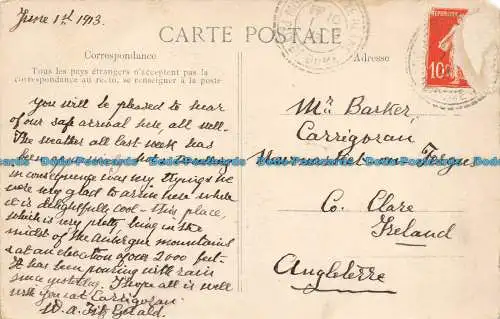 June 1st 1913.
CARTE POSTALE
Correspondance
Adresse
Tous les pays étrangers n'acceptent pas la
correspondance au recto, se renseigner à la poste
You will be pleased to hear
of our safe arrival here, all well.
The weather all last week has
been very hot, travelling
in consequence was very trying & we
were very glad to arrive here where
it is delightfully cool - this place,
which is very pretty, being in the
midst of the Auvergne mountains
& at an elevation of over 2000 feet.
It has been pouring with rain
since yesterday. I hope all is well
with you at Carrigoran.
W. A. Fitz Gerald.
Mr. Barker,
Carrigoran
Newmarket-on-Fergus
Co. Clare
Ireland
Angleterre
10